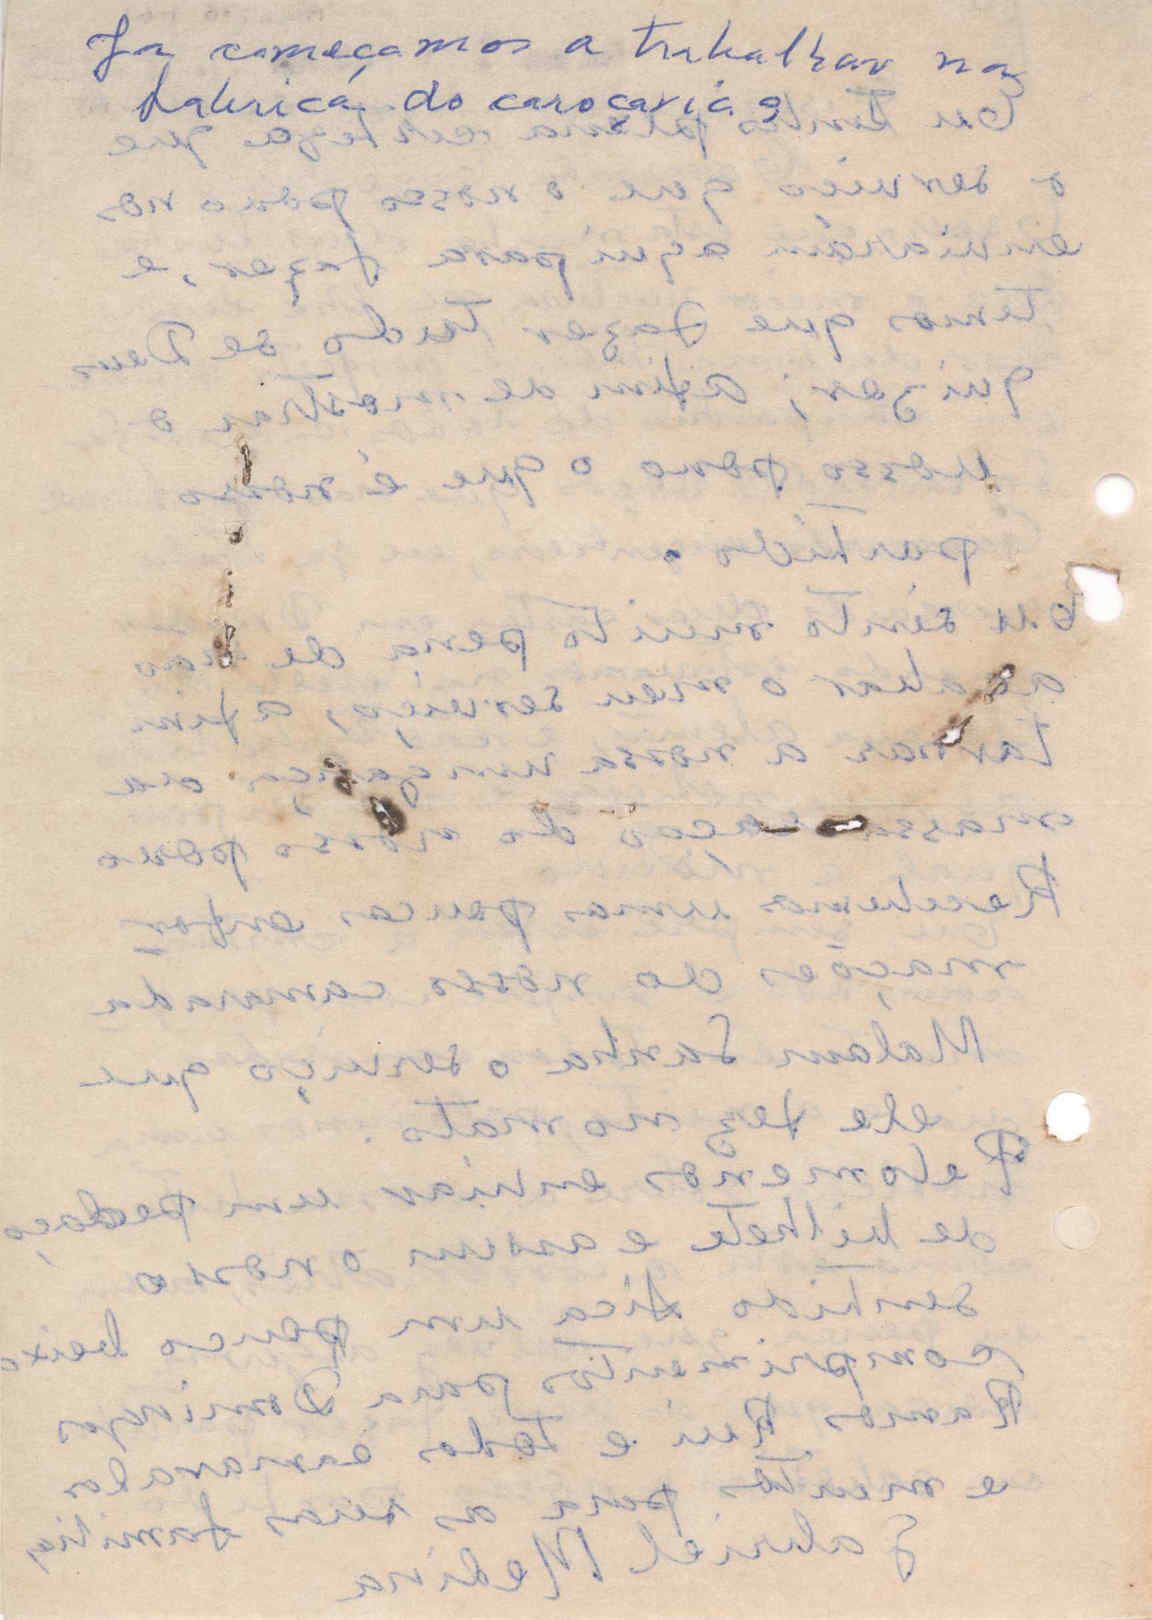 Ja começamos a trabalhar na
fabrica, do
Eu tinha plena certeza que
o serviço que o nosso povo nos
enviaram aqui para fazer, e
temos que fazer tudo se Deus
quizer; afim demostrar o
nosso povo o que é nosso
partido.
Eu sinto muito pena de não
acabar o meu serviço, a fim
tarmar a nossa vingança ou a
do nosso povo
Recebemos umas poucas enfor
mações do nosso camarada
Malam Sanha o serviço que
ele fez no mato.
Pelomenos enviar um pedaço
de bilhete e assim o nosso
sentido fica um pouco beixo
Comprimentos para Domingos
Ramos Rui e todos camaradas
e mentos para as suas familia,
Gabriel Medina